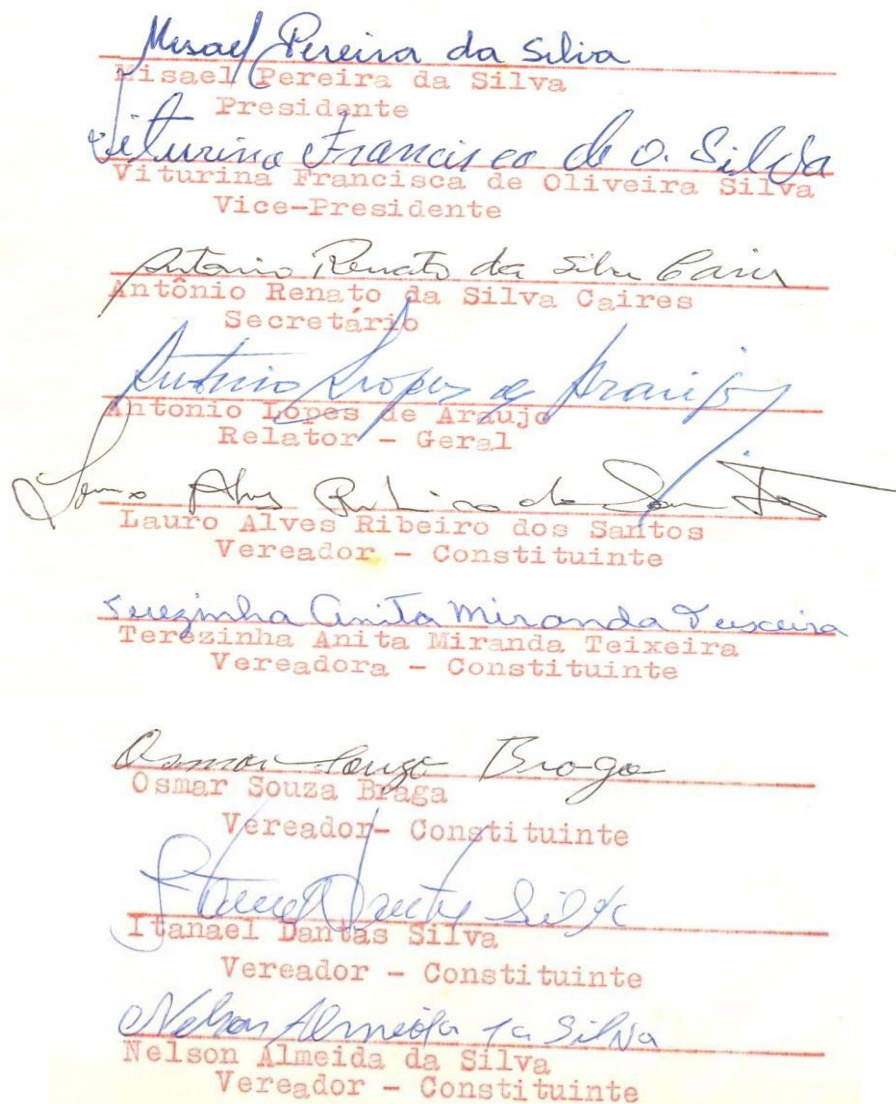 Misael Pereira da Silva
Misael Pereira da Silva
Presidente
Viturina Francisca de O. Silva
Viturina Francisca de Oliveira Silva
Vice-Presidente
Antonio Renato da Silva Caires
Antônio Renato da Silva Caires
Secretário
Antonio Lopes de Araujo
Antonio Lopes de Araujo
Relator - Geral
Lauro Alves Ribeiro dos Santos
Lauro Alves Ribeiro dos Santos
Vereador - Constituinte
Terezinha Anita Miranda Teixeira
Terezinha Anita Miranda Teixeira
Vereadora - Constituinte
Osmar Souza Braga
Osmar Souza Braga
Vereador- Constituinte
Itanael Dantas Silva
Itanael Dantas Silva
Vereador - Constituinte
Nelson Almeida da Silva
Nelson Almeida da Silva
Vereador - Constituinte